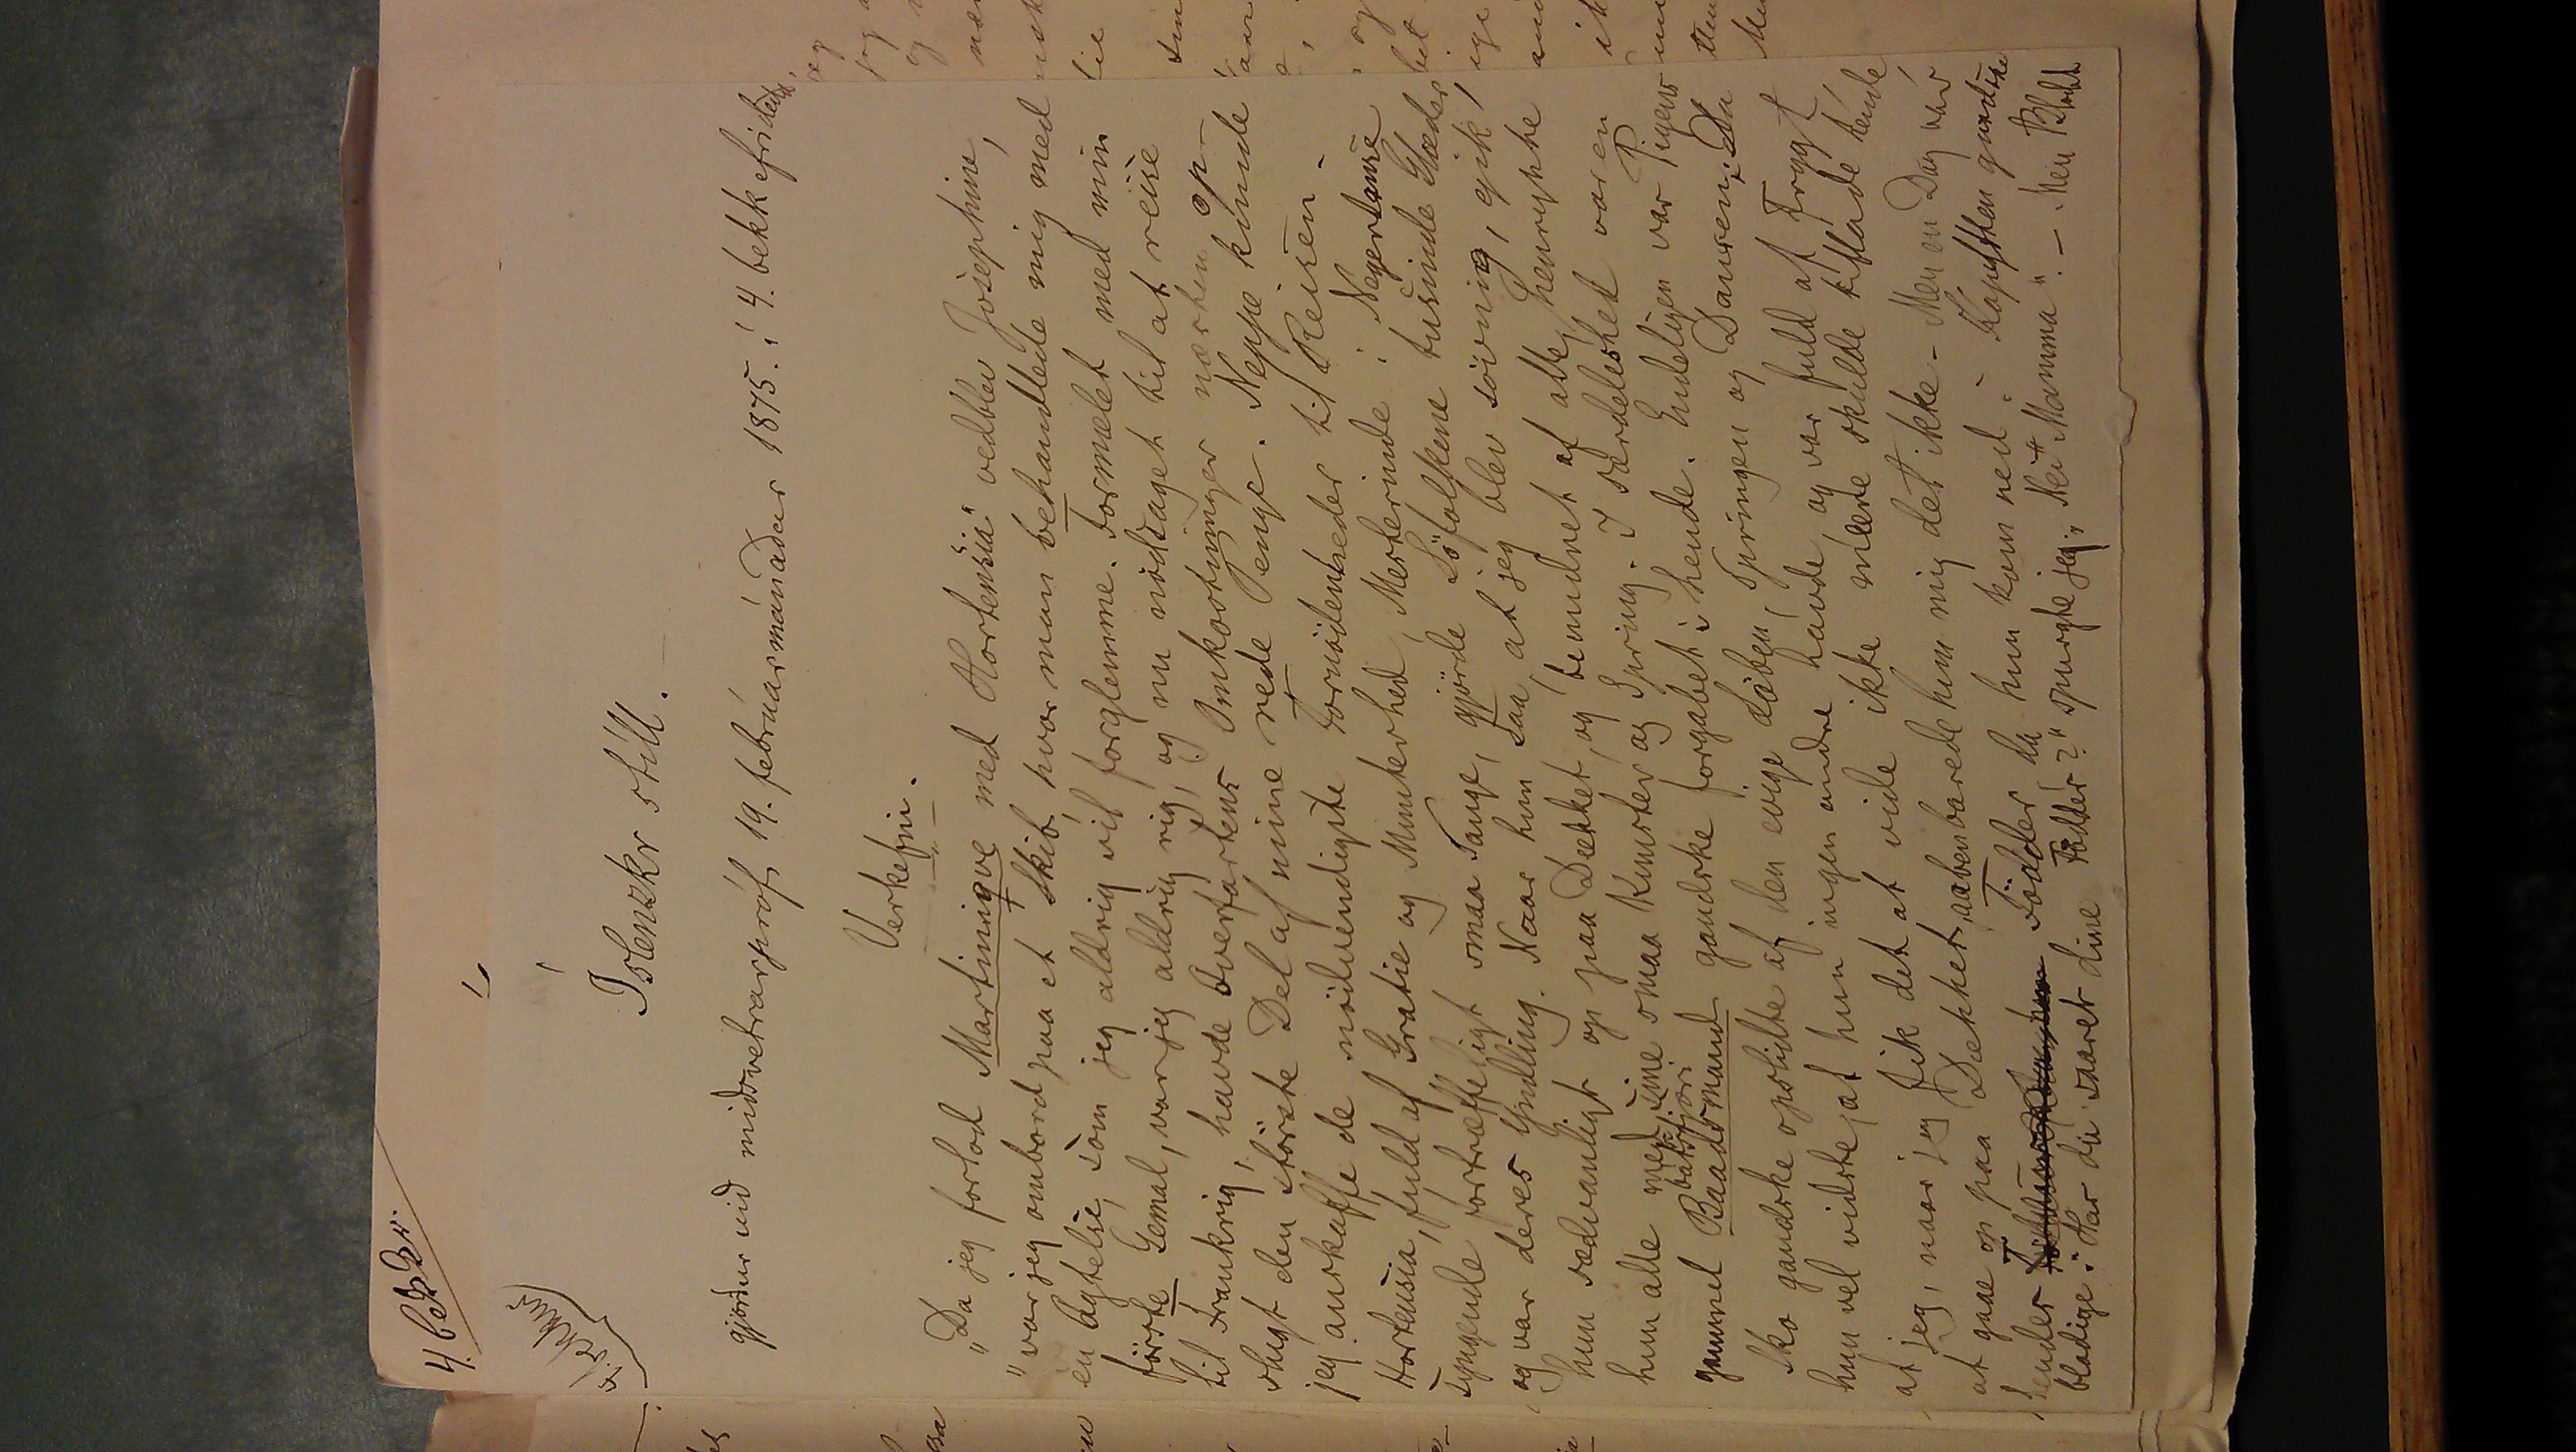 4. bekkr.
Íslenzkr stíll.
gjörður við miðsvetrarpróf 19. febrúarmánaðar 1875. í 4. bekk
Verkefni.
"Da jeg forlod Martinique med Hortensia" vedblev Josephine,
"var jeg ombord paa et Skib, hvor man behandlede mig med
en Agtelse, som jeg aldrig vil forglemme. Formælet med min
förste Gemal, var jeg aldrig rig, og nu nödsaget til at reise
til Frankrig, havde Overfartens Omkostninger næsten op-
slugt den störste Del af mine rede Penge. Neppe kunde
jeg anskaffe de nödvendigste Fornödenheder til Reisen.
Hortensia, fuld af Gratie og Munterhed, Mesterinde i Negerdanse
syngende fortræffeligt smaa Sange, gjörde Söfolkene tusinde Glæder
og var deres Yndling. Naar hun saa, at jeg blev sövnig, gik
hun sædvanligt op paa Dækket, og, beundret af alle, henrykte
hun alle med sine smaa Kunster og Spring. I Særdeleshed var en
bátsfjóri
gammel Baadsmand gandske forgabet i hende. Endeligen var Pigens
Sko gandske opslidte af den evige Löben, Springen og Dansen; Da
hun vel vidste, at hun ingen andre havde og var fuld af Frygt
at jeg, naar jeg fik det at vide ikke mere skulde tillade hende
at gaae op paa Dækket, aabenbarede hun mig det ikke - Men en Dag var
hendes Födder da hun kom ned i Kahytten gandske
blodige. "Har du saaret dine Födder?" spurgte jeg. "Nei Mamma". - Men Blodet